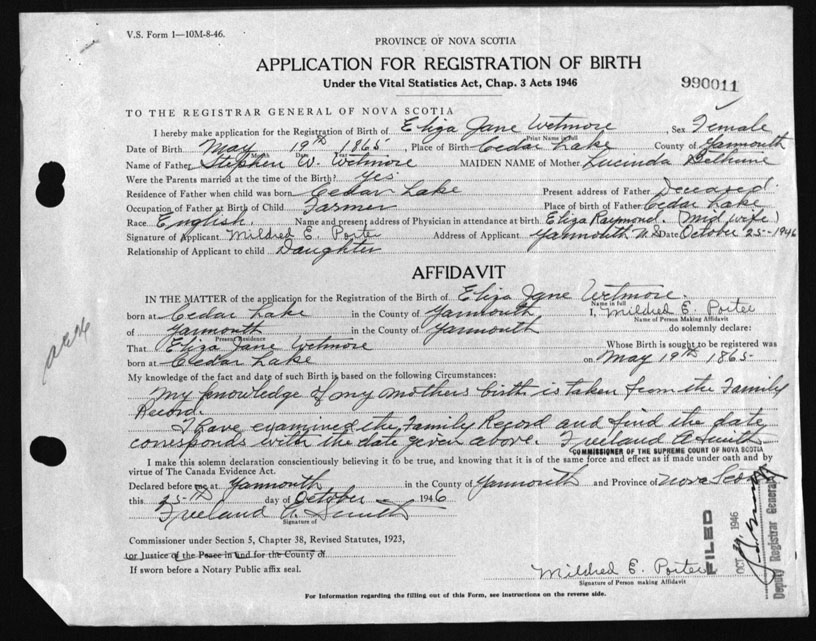 V.S. Form 1—10M-8-46.
PROVINCE OF NOVA SCOTIA
APPLICATION FOR REGISTRATION OF BIRTH
Under the Vital Statistics Act, Chap. 3 Acts 1946
990011
TO THE REGISTRAR GENERAL OF NOVA SCOTIA
I hereby make application for the Registration of Birth of Eliza Jane Wetmore, Sex Female
Print Name in full
Date of Birth May 19th 1865, Place of Birth Cedar Lake County of Yarmouth
Month Date Year
Name of Father Stephen W. Wetmore MAIDEN NAME of Mother Lucinda
Were the Parents married at the time of the Birth? Yes.
Residence of Father when child was born Cedar Lake Present address of Father Deceased.
Occupation of Father at Birth of Child Farmer Place of birth of Father Cedar Lake
Race English. Name and present address of Physician in attendance at birth Eliza Raymond. (Mid wife)
Signature of Applicant Mildred E. Porter Address of Applicant Yarmouth N.S. Date October 25 - 1946
Relationship of Applicant to child Daughter
AFFIDAVIT
IN THE MATTER of the application for the Registration of the Birth of Eliza Jane Wetmore.
Name in full
born at Cedar Lake in the County of Yarmouth I, Mildred E. Porter
Name of Person Making Affidavit
of Yarmouth in the County of Yarmouth do solemnly declare:
Present Residence
That Eliza Jane Wetmore Whose Birth is sought to be registered was
born at Cedar Lake on May 19th 1865-
My knowledge of the fact and date of such Birth is based on the following Circumstances:
My knowledge of my mothers birth is taken from the Family
Record.
I have examined the Family Record and find the date
corresponds with the date given above. Freeland A. Smith
COMMISSIONER OF THE SUPREME COURT OF NOVA SCOTIA
I make this solemn declaration conscientiously believing it to be true, and knowing that it is of the same force and effect as if made under oath and by
virtue of The Canada Evidence Act.
Declared before me at Yarmouth in the County of Yarmouth and Province of Nova Scotia
this 25-th day of October 1946
Freeland A. Smith
Signature of
Commissioner under Section 5, Chapter 38, Revised Statutes, 1923,
or Justice of the Peace in and for the County of
If sworn before a Notary Public affix seal.
FILED
OCT 1946
Deputy Registrar General
Mildred E. Porter
Signature of Person making Affidavit
For Information regarding the filling out of this Form, see instructions on the reverse side.